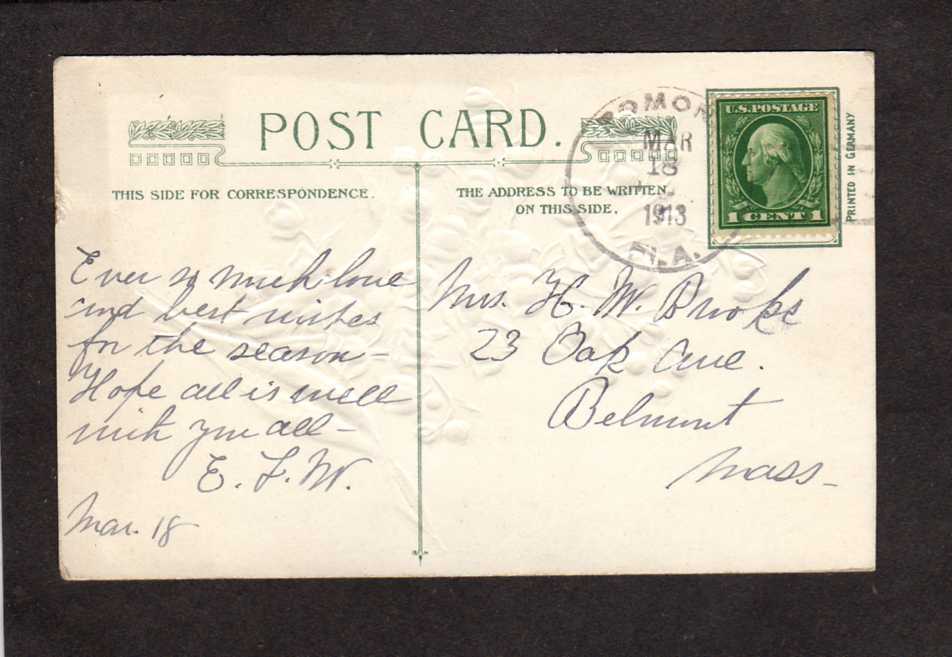 POST CARD.
THIS SIDE FOR CORRESPONDENCE.
THE ADDRESS TO BE WRITTEN
ON THIS SIDE.
MAR
18
1913
FLA.
U.S. POSTAGE
1 CENT 1
PRINTED IN GERMANY
Ever so much love
and best wishes
for the season —
Hope all is well
with you all —
E. F. W.
Mar. 18
Mrs. H. W. Brooks
23 Oak Ave.
Belmont
Mass —